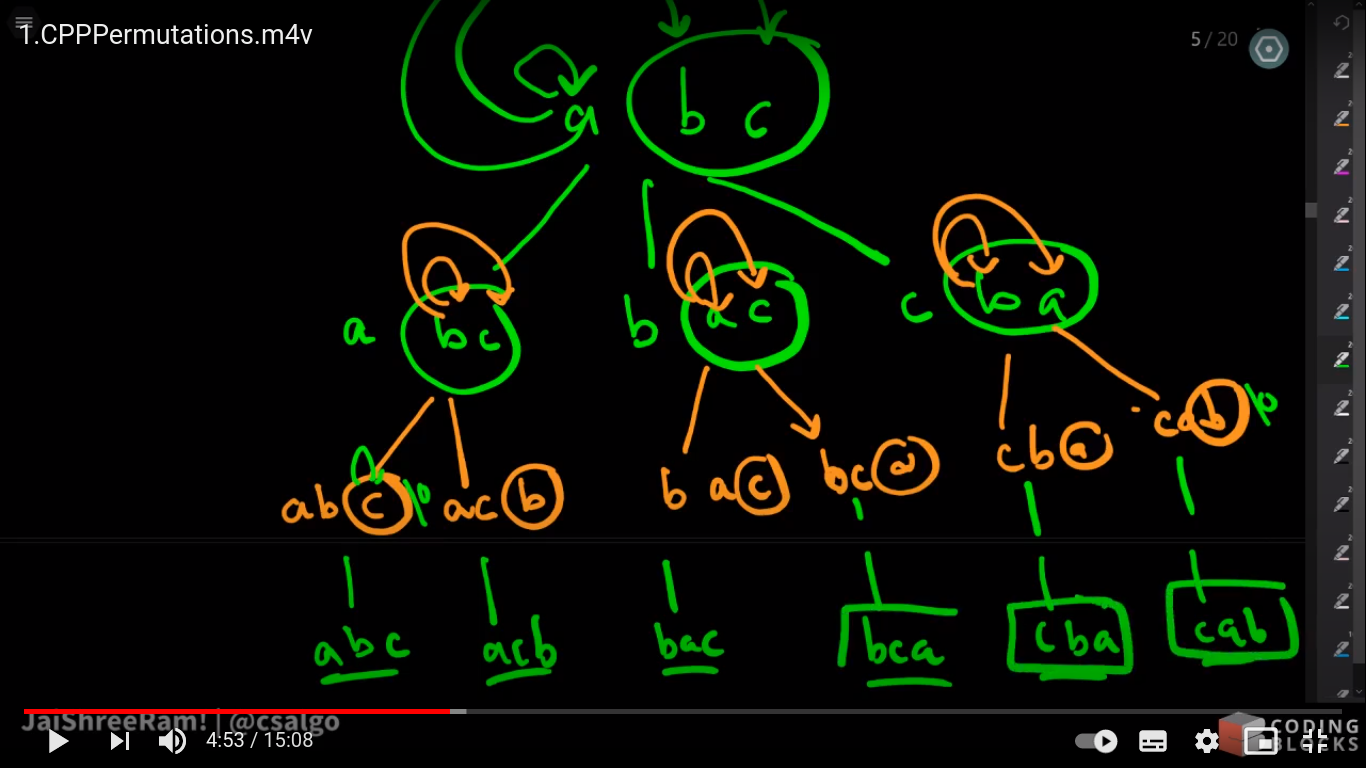 1.CPPPermutations.m4v
5 / 20
a b c
a b c
b a c
c b a
a b c \0
a c b
b a c
b c a
c b a
c a b \0
abc
acb
bac
bca
cba
cab
JaiShreeRam! | @csalgo
CODING
BLOCKS
4:53 / 15:08